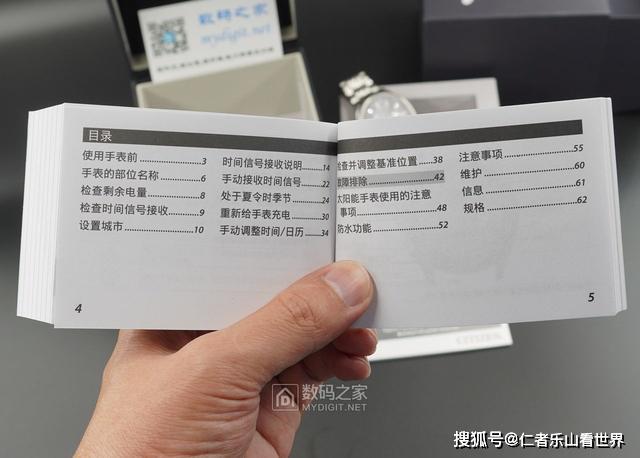 数码之家
mydigit.net
目录
使用手表前 3
手表的部位名称 6
检查剩余电量 8
检查时间信号接收 9
设置城市 10
时间信号接收说明 14
手动接收时间信号 22
处于夏令时季节 24
重新给手表充电 30
手动调整时间/日历 34
检查并调整基准位置 38
故障排除 42
太阳能手表使用的注意
事项 48
防水功能 52
注意事项 55
维护 60
信息 61
规格 62
4
5
CITIZEN
数码之家
MYDIGIT.NET
搜狐号@仁者乐山看世界